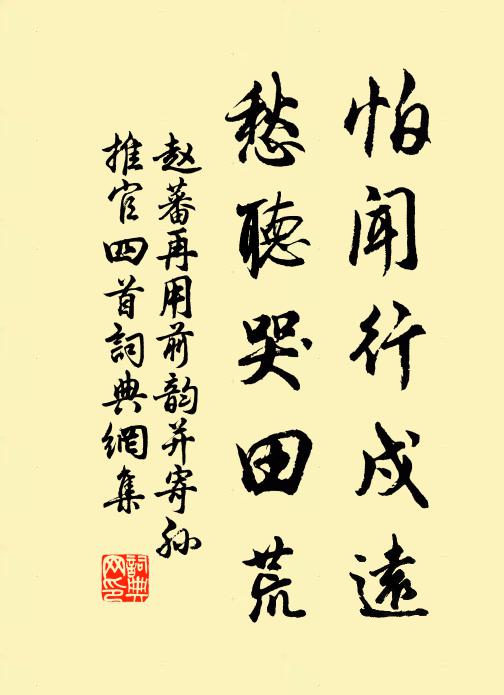 怕闻行戍遠
愁聽哭田荒
赵蕃再用前韵并寄孙
推官四首詞典網集
詞典网印